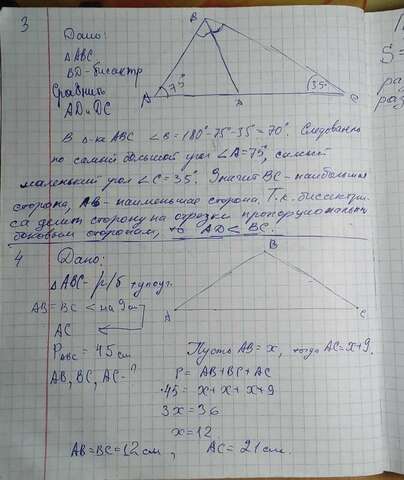 3
Дано:
Δ ABC
BD - биссектр
Сравнить
AD и DC
B
A
75°
35°
D
C
В Δ-ке ABC ∠B = 180°-75°-35°=70°. Следовательно
самый большой угол ∠A=75°, самый
маленький угол ∠C=35°. Значит BC - наибольшая
сторона, AB - наименьшая сторона. Т.к. биссектри-
са делит сторону на отрезки пропорциональны
боковым сторонам, то AD < BC.
4
Дано:
Δ ABC - р/б, тупоуг.
AB = BC < на 9 см
AC
P ABC = 45 см
AB, BC, AC - ?
A
B
C
Пусть AB = x, тогда AC = x+9.
P = AB + BC + AC
45 = x + x + x + 9
3x = 36
x = 12
AB = BC = 12 см, AC = 21 см.